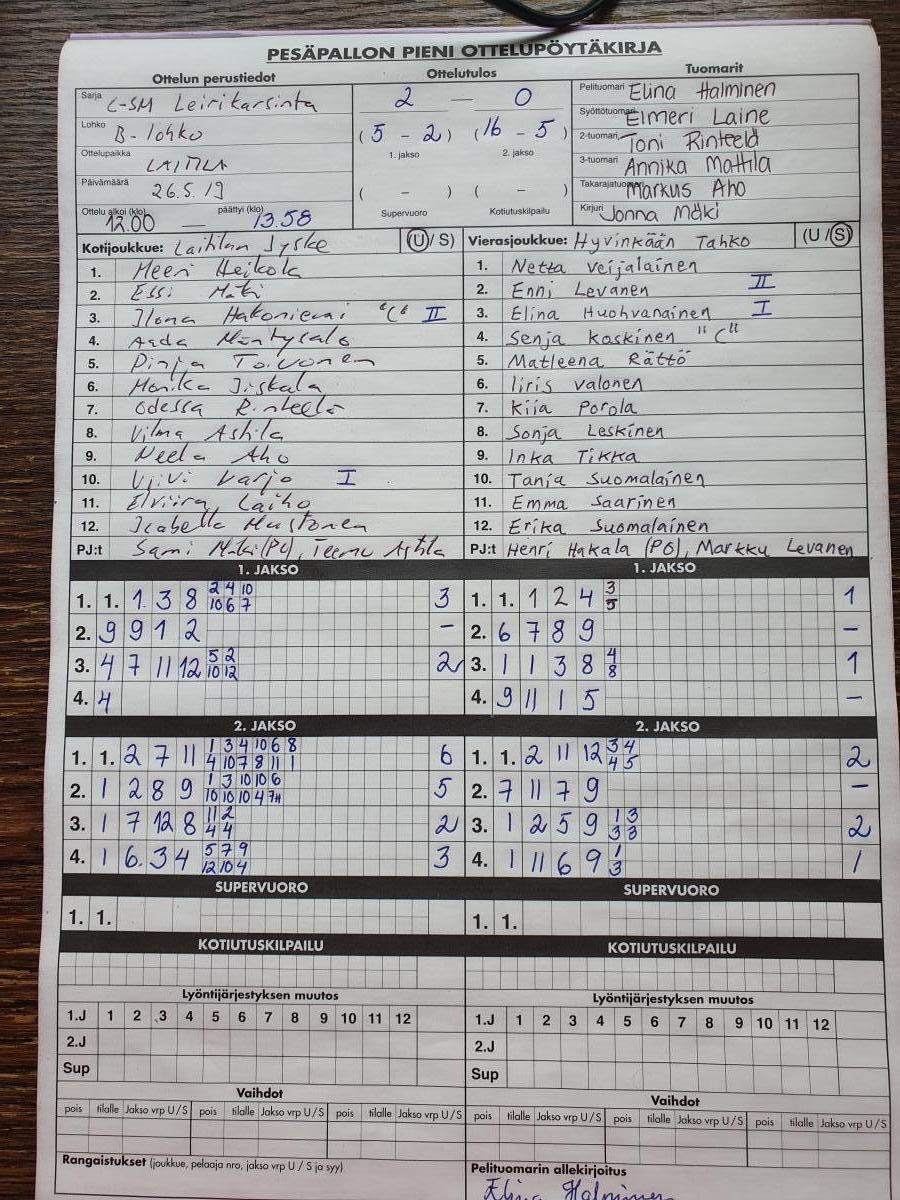 PESÄPALLON PIENI OTTELUPÖYTÄKIRJA
Ottelun perustiedot
Sarja C-SM Leirikarsinta
Lohko B-lohko
Ottelupaikka LAITILA
Päivämäärä 26.5.19
Ottelu alkoi (klo) 12.00 — päättyi (klo) 13.58
Ottelutulos
2 — 0
(5 - 2) (16 - 5)
1. jakso 2. jakso
( - ) ( - )
Supervuoro Kotiutuskilpailu
Tuomarit
Pelituomari Elina Halminen
Syöttötuomari Elmeri Laine
2-tuomari Toni Rinteelä
3-tuomari Annika Mattila
Takarajatuomari Markus Aho
Kirjuri Jonna Mäki
Kotijoukkue: Laitilan Jyske (U/ S)
1. Meeri Heikola
2. Essi Mäki
3. Ilona Hakoniemi "C" II
4. Aada Mäntysalo
5. Pinja Toivonen
6. Monika Jiskala
7. Odessa Rinteelä
8. Vilma Astila
9. Neela Aho
10. Viivi Varjo I
11. Elviira Laiho
12. Isabella Mustonen
PJ:t Sami Mäki (PC), Teemu Astila
Vierasjoukkue: Hyvinkään Tahko (U /S)
1. Netta Veijalainen
2. Enni Levänen II
3. Elina Huohvanainen I
4. Senja Koskinen "C"
5. Matleena Rättö
6. Iiris Valonen
7. Kiia Porola
8. Sonja Leskinen
9. Inka Tikka
10. Tanja Suomalainen
11. Emma Saarinen
12. Erika Suomalainen
PJ:t Henri Hakala (PO), Markku Levanen
1. JAKSO
1. 1. 1 3 8 2 4 10 3
10 6 7
2. 9 9 1 2 –
3. 4 7 11 12 5 2 2
10 12
4. 4
1. JAKSO
1. 1. 1 2 4 3 1
5
2. 6 7 8 9 –
3. 1 1 3 8 4 1
8
4. 9 11 1 5 –
2. JAKSO
1. 1. 2 7 11 1 3 4 10 6 8 6
4 10 7 8 11 1
2. 1 2 8 9 1 3 10 10 6 5
10 10 10 4 7
3. 1 7 12 8 11 2 2
4 4
4. 1 6. 3 4 5 7 9 3
12 10 4
2. JAKSO
1. 1. 2 11 12 3 4 2
4 5
2. 7 11 7 9 –
3. 1 2 5 9 1 3 2
3 3
4. 1 11 6 9 1 1
3
SUPERVUORO
1. 1.
SUPERVUORO
1. 1.
KOTIUTUSKILPAILU
KOTIUTUSKILPAILU
Lyöntijärjestyksen muutos
1.J 1 2 3 4 5 6 7 8 9 10 11 12
2.J
Sup
Lyöntijärjestyksen muutos
1.J 1 2 3 4 5 6 7 8 9 10 11 12
2.J
Sup
Vaihdot
pois tilalle Jakso vrp U / S pois tilalle Jakso vrp U / S pois tilalle Jakso vrp U / S
Vaihdot
pois tilalle Jakso vrp U / S pois tilalle Jakso vrp U / S pois tilalle Jakso vrp U / S
Rangaistukset (joukkue, pelaaja nro, jakso vrp U / S ja syy)
Pelituomarin allekirjoitus
Elina Halminen